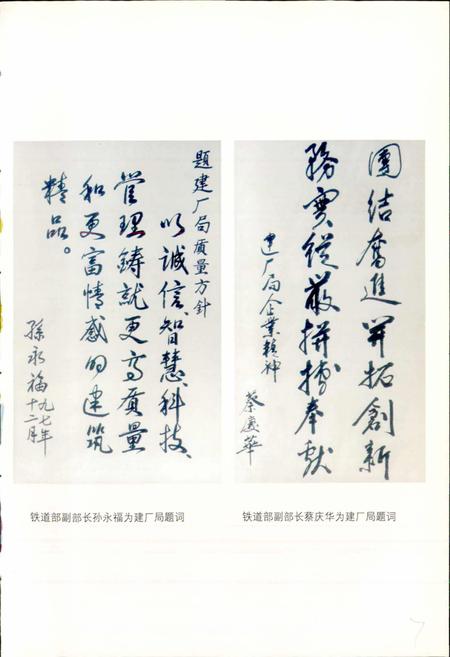 题建厂局质量方針
以诚信、智慧、科技、
管理鋳就更高质量
和更富情感的建筑
精品。
孫永福
一九九七年
十二月
铁道部副部长孙永福为建厂局题词
團结奮進開拓創新
務實從嚴拼搏奉献
建厂局企業精神
蔡慶華
铁道部副部长蔡庆华为建厂局题词
7